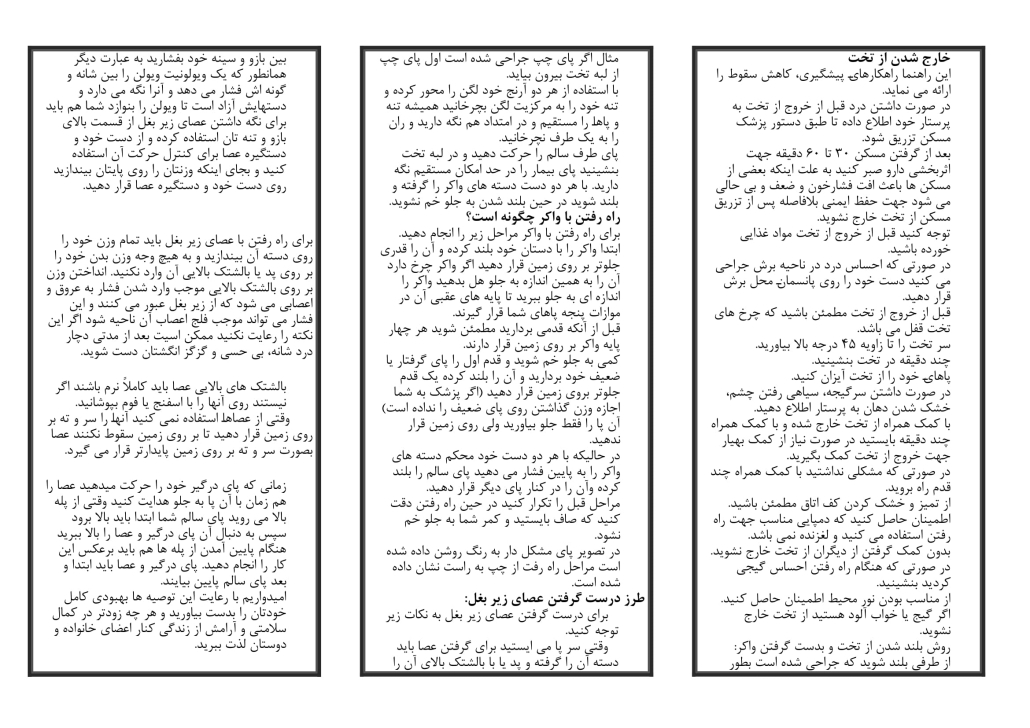 خارج شدن از تخت
این راهنما راهکارهای پیشگیری، کاهش سقوط را
ارائه می نماید.
در صورت داشتن درد قبل از خروج از تخت به
پرستار خود اطلاع داده تا طبق دستور پزشک
مسکن تزریق شود.
بعد از گرفتن مسکن ۳۰ تا ۶۰ دقیقه جهت
اثربخشی دارو صبر کنید به علت اینکه بعضی از
مسکن ها باعث افت فشارخون و ضعف و بی حالی
می شود جهت حفظ ایمنی بلافاصله پس از تزریق
مسکن از تخت خارج نشوید.
توجه کنید قبل از خروج از تخت مواد غذایی
خورده باشید.
در صورتی که احساس درد در ناحیه برش جراحی
می کنید دست خود را روی پانسمان محل برش
قرار دهید.
قبل از خروج از تخت مطمئن باشید که چرخ های
تخت قفل می باشد.
سر تخت را تا زاویه ۴۵ درجه بالا بیاورید.
چند دقیقه در تخت بنشینید.
پاهای خود را از تخت آیزان کنید.
در صورت داشتن سرگیجه، سیاهی رفتن چشم،
خشک شدن دهان به پرستار اطلاع دهید.
با کمک همراه از تخت خارج شده و با کمک همراه
چند دقیقه بایستید در صورت نیاز از کمک بهیار
جهت خروج از تخت کمک بگیرید.
در صورتی که مشکلی نداشتید با کمک همراه چند
قدم راه بروید.
از تمیز و خشک کردن کف اتاق مطمئن باشید.
اطمینان حاصل کنید که دمپایی مناسب جهت راه
رفتن استفاده می کنید و لغزنده نمی باشد.
بدون کمک گرفتن از دیگران از تخت خارج نشوید.
در صورتی که هنگام راه رفتن احساس گیجی
کردید بنشینید.
از مناسب بودن نور محیط اطمینان حاصل کنید.
اگر گیج یا خواب آلود هستید از تخت خارج
نشوید.
روش بلند شدن از تخت و بدست گرفتن واکر:
از طرفی بلند شوید که جراحی شده است بطور
مثال اگر پای چپ جراحی شده است اول پای چپ
از لبه تخت بیرون بیاید.
با استفاده از هر دو آرنج خود لگن را محور کرده و
تنه خود را به مرکزیت لگن بچرخانید همیشه تنه
و پاها را مستقیم و در امتداد هم نگه دارید و ران
را به یک طرف نچرخانید.
پای طرف سالم را حرکت دهید و در لبه تخت
بنشینید پای بیمار را در حد امکان مستقیم نگه
دارید. با هر دو دست دسته های واکر را گرفته و
بلند شوید در حین بلند شدن به جلو خم نشوید.
راه رفتن با واکر چگونه است؟
برای راه رفتن با واکر مراحل زیر را انجام دهید.
ابتدا واکر را با دستان خود بلند کرده و آن را قدری
جلوتر بر روی زمین قرار دهید اگر واکر چرخ دارد
آن را به همین اندازه به جلو هل بدهید واکر را
اندازه ای به جلو ببرید تا پایه های عقبی آن در
موازات پنجه پاهای شما قرار گیرند.
قبل از آنکه قدمی بردارید مطمئن شوید هر چهار
پایه واکر بر روی زمین قرار دارند.
کمی به جلو خم شوید و قدم اول را پای گرفتار یا
ضعیف خود بردارید و آن را بلند کرده یک قدم
جلوتر بروی زمین قرار دهید (اگر پزشک به شما
اجازه وزن گذاشتن روی پای ضعیف را نداده است)
آن پا را فقط جلو بیاورید ولی روی زمین قرار
ندهید.
در حالیکه با هر دو دست خود محکم دسته های
واکر را به پایین فشار می دهید پای سالم را بلند
کرده وآن را در کنار پای دیگر قرار دهید.
مراحل قبل را تکرار کنید در حین راه رفتن دقت
کنید که صاف بایستید و کمر شما به جلو خم
نشود.
در تصویر پای مشکل دار به رنگ روشن داده شده
است مراحل راه رفت از چپ به راست نشان داده
شده است.
طرز درست گرفتن عصای زیر بغل:
برای درست گرفتن عصای زیر بغل به نکات زیر
توجه کنید.
وقتی سر پا می ایستید برای گرفتن عصا باید
دسته آن را گرفته و پد یا با بالشتک بالای آن را
بین بازو و سینه خود بفشارید به عبارت دیگر
همانطور که یک ویولونیت ویولن را بین شانه و
گونه اش فشار می دهد و آنرا نگه می دارد و
دستهایش آزاد است تا ویولن را بنوازد شما هم باید
برای نگه داشتن عصای زیر بغل از قسمت بالای
بازو و تنه تان استفاده کرده و از دست خود و
دستگیره عصا برای کنترل حرکت آن استفاده
کنید و بجای اینکه وزنتان را روی پایتان بیندازید
روی دست خود و دستگیره عصا قرار دهید.
برای راه رفتن با عصای زیر بغل باید تمام وزن خود را
روی دسته آن بیندازید و به هیچ وجه وزن بدن خود را
بر روی پد یا بالشتک بالایی آن وارد نکنید. انداختن وزن
بر روی بالشتک بالایی موجب وارد شدن فشار به عروق و
اعصابی می شود که از زیر بغل عبور می کنند و این
فشار می تواند موجب فلج اعصاب آن ناحیه شود اگر این
نکته را رعایت نکنید ممکن اسیت بعد از مدتی دچار
درد شانه، بی حسی و گزگز انگشتان دست شوید.
بالشتک های بالایی عصا باید کاملاً نرم باشند اگر
نیستند روی آنها را با اسفنج یا فوم بپوشانید.
وقتی از عصاها استفاده نمی کنید آنها را سر و ته بر
روی زمین قرار دهید تا بر روی زمین سقوط نکنند عصا
بصورت سر و ته بر روی زمین پایدارتر قرار می گیرد.
زمانی که پای درگیر خود را حرکت میدهید عصا را
هم زمان با آن پا به جلو هدایت کنید وقتی از پله
بالا می روید پای سالم شما ابتدا باید بالا برود
سپس به دنبال آن پای درگیر و عصا را بالا ببرید
هنگام پایین آمدن از پله ها هم باید برعکس این
کار را انجام دهید. پای درگیر و عصا باید ابتدا و
بعد پای سالم پایین بیایند.
امیدواریم با رعایت این توصیه ها بهبودی کامل
خودتان را بدست بیاورید و هر چه زودتر در کمال
سلامتی و آرامش از زندگی کنار اعضای خانواده و
دوستان لذت ببرید.